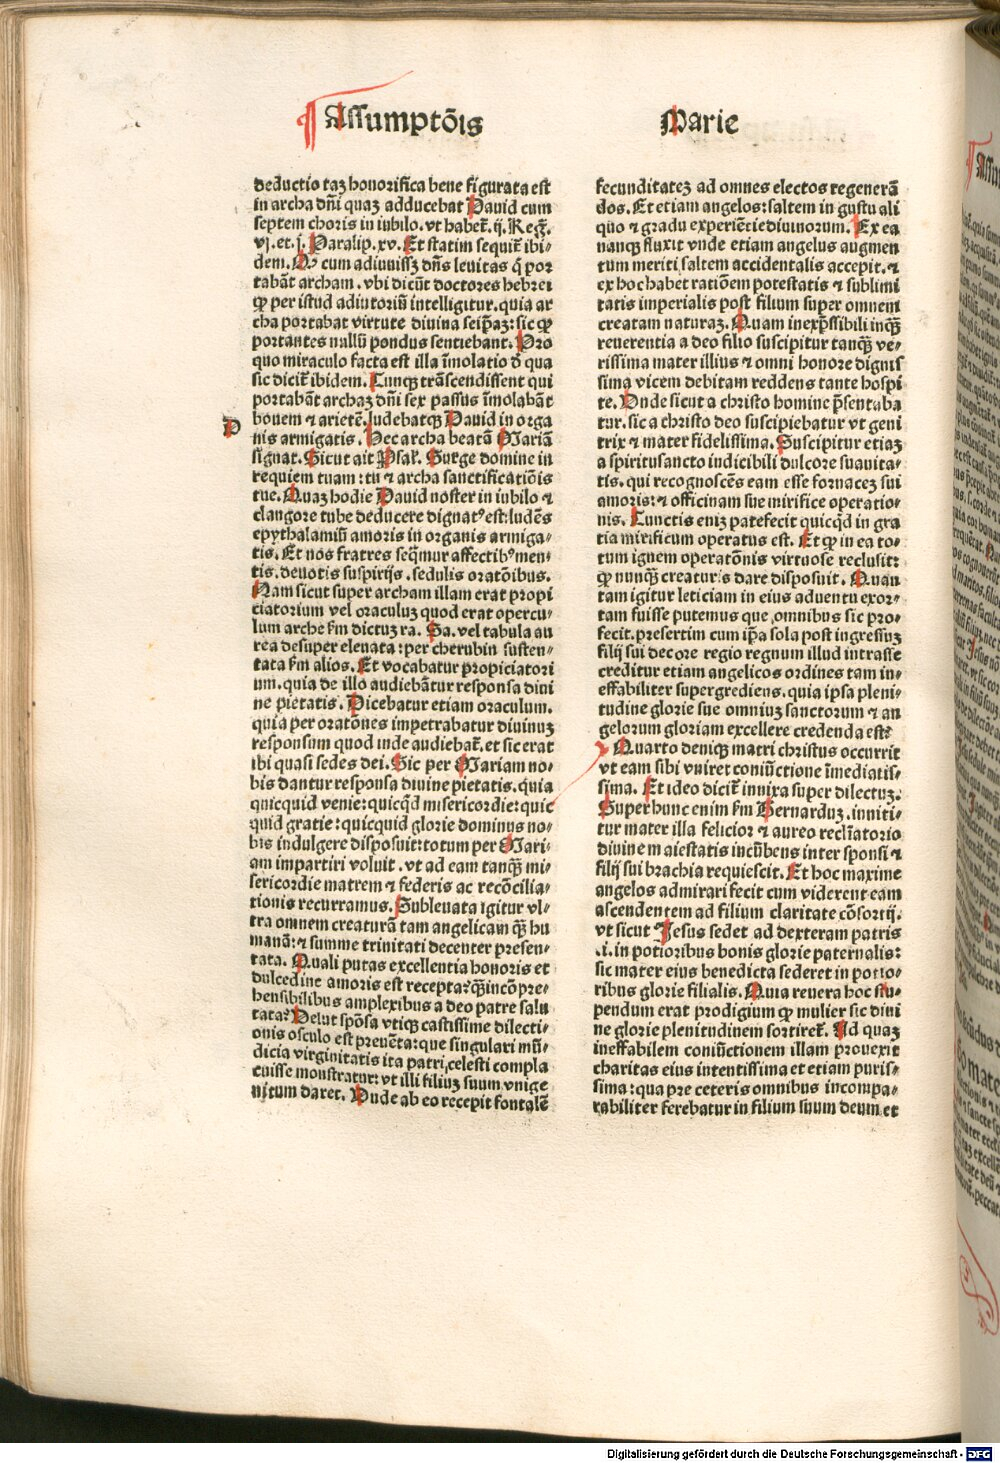 Assumptõis Marie
deductio taꝫ honorifica bene figurata est
in archa dñi quaꝫ adducebat Dauid cum
septem choris in iubilo. vt habet̃. ij. Reg̃.
vj. et. j. Paralip. xv. Et statim sequit̃ ibi⸗
dem. Qꝫ cum adiuuissꝫ dñs leuitas q̃ por
tabãt archam. vbi dicũt doctores hebrei
ꝙ per istud adiutoriũ intelligitur. quia ar
cha portabat virtute diuina seip̃aꝫ: sic ꝙ
portantes nullũ pondus sentiebant. Pro
quo miraculo facta est illa ĩmolatio d̃ qua
sic dicit̃ ibidem. Cunqꝫ trãscendissent qui
portabãt archaꝫ dñi sex passus ĩmolabãt
bouem ⁊ arietẽ. ludebatqꝫ Dauid in orga
D
nis armigatis. Hec archa beatã Mariã
signat. Sicut ait Psal̃. Surge domine in
requiem tuam: tu ⁊ archa sanctificatiõis
tue. Quaꝫ hodie Dauid noster in iubilo ⁊
clangore tube deducere dignatꝰ est: ludẽs
epythalamiũ amoris in organis armiga⸗
tis. Et nos fratres seq̃mur affectibꝰ men⸗
tis. deuotis suspirijs. sedulis oratõibus.
Nam sicut super archam illam erat propi
ciatorium vel oraculuꝫ quod erat opercu⸗
lum arche s̃m dictuꝫ ra. Sa. vel tabula au
rea desuper eleuata: per cherubin susten⸗
tata s̃m alios. Et vocabatur propiciatori
um. quia de illo audiebãtur responsa diui
ne pietatis. Dicebatur etiam oraculum.
quia per oratõnes impetrabatur diuinuꝫ
responsum quod inde audiebat̃. et sic erat
ibi quasi sedes dei. Sic per Mariam no⸗
bis dantur responsa diuine pietatis. quia
quicquid venie: quicq̃d misericordie: quic
quid gratie: quicquid glorie dominus no⸗
bis indulgere disposuit: totum per Mari⸗
am impartiri voluit. vt ad eam tanqꝫ̃ mi⸗
sericordie matrem ⁊ federis ac recõcilia⸗
tionis recurramus. Subleuata igitur vl⸗
tra omnem creaturã tam angelicam qꝫ̃ hu
manã: ⁊ summe trinitati decenter presen⸗
tata. Quali putas excellentia honoris et
dulcedine amoris est recepta? qꝫ̃ incõpre⸗
hensibilibus amplexibus a deo patre salu
tata? Velut spõsa vtiqꝫ castissime dilecti⸗
onis osculo est preuẽta: que singulari mũ⸗
dicia virginitatis ita patri celesti compla
cuisse monstratur: vt illi filiuꝫ suum vnige
nitum daret. Unde ab eo recepit fontalẽ
fecunditateꝫ ad omnes electos regenerã
dos. Et etiam angelos: saltem in gustu ali
quo ⁊ gradu experiẽtie diuinorum. Ex ea
nanqꝫ fluxit vnde etiam angelus augmen
tum meriti saltem accidentalis accepit. ⁊
ex hoc habet ratiõem potestatis ⁊ sublimi
tatis imperialis post filium super omnem
creatam naturaꝫ. Quam inexp̃ssibili inqꝫ̃
reuerentia a deo filio suscipitur tanqꝫ̃ ve⸗
rissima mater illius ⁊ omni honore dignis
sima vicem debitam reddens tante hospi
te. Unde sicut a christo homine p̃sentaba
tur. sic a christo deo suscipiebatur vt geni
trix ⁊ mater fidelissima. Suscipitur etiaꝫ
a spiritusancto indicibili dulcore suauita⸗
tis. qui recognoscẽs eam esse fornaceꝫ sui
amoris: ⁊ officinam sue mirifice operatio⸗
nis. Cunctis eniꝫ patefecit quicq̃d in gra
tia mirificum operatus est. Et ꝙ in ea to⸗
tum ignem operatõnis virtuose reclusit:
ꝙ nunqꝫ̃ creaturis dare disposuit. Quan
tam igitur leticiam in eius aduentu exor⸗
tam fuisse putemus que omnibus sic pro⸗
fecit. presertim cum ip̃a sola post ingressuꝫ
filij sui decore regio regnum illud intrasse
creditur etiam angelicos ordines tam in⸗
effabiliter supergrediens. quia ipsa pleni⸗
tudine glorie sue omniuꝫ sanctorum ⁊ an
gelorum gloriam excellere credenda est?
Quarto deniqꝫ matri christus occurrit
vt eam sibi vniret coniũctione ĩmediatis⸗
sima. Et ideo dicit̃ innixa super dilectuꝫ.
Super hunc enim s̃m Bernarduꝫ. inniti⸗
tur mater illa felicior ⁊ aureo reclĩatorio
diuine maiestatis incũbens inter sponsi ⁊
filij sui brachia requiescit. Et hoc maxime
angelos admirari fecit cum viderent eam
ascendentem ad filium claritate cõsortij.
vt sicut Jesus sedet ad dexteram patris
.i. in potioribus bonis glorie paternalis:
sic mater eius benedicta sederet in potio⸗
ribus glorie filialis. Quia reuera hoc stu⸗
pendum erat prodigium ꝙ mulier sic diui
ne glorie plenitudinem sortiret̃. Ad quaꝫ
ineffabilem coniũctionem illam prouexit
charitas eius intentissima et etiam puris⸗
sima: qua pre ceteris omnibus incompa⸗
rabiliter ferebatur in filium suum deum et
Digitalisierung gefördert durch die Deutsche Forschungsgemeinschaft - DFG